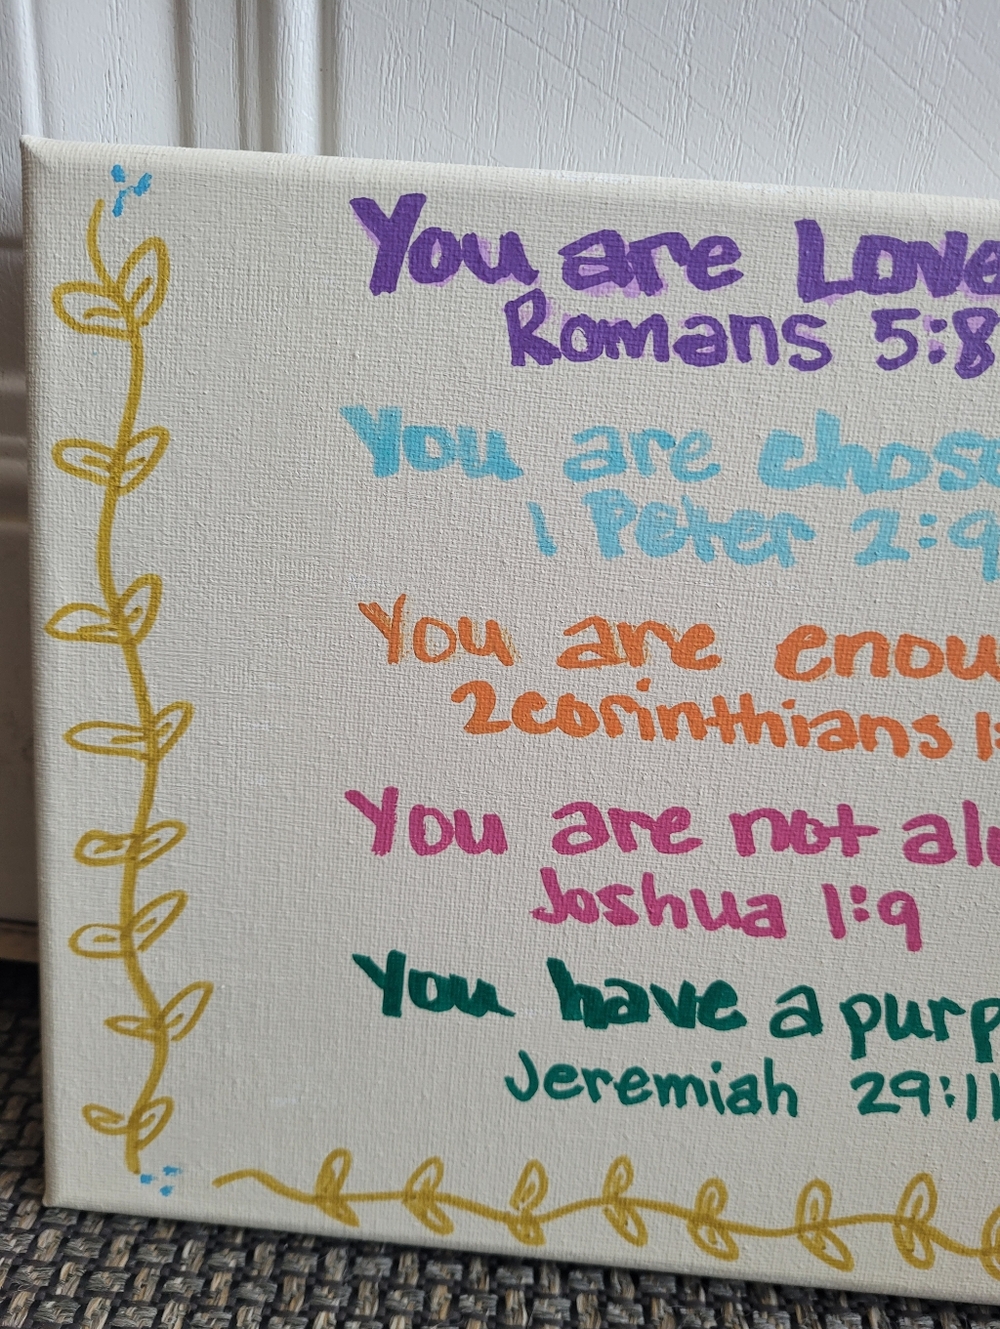 You are Love
Romans 5:8
You are chose
1 Peter 2:9
You are enou
2corinthians 1:
You are not alo
Joshua 1:9
You have a purp
Jeremiah 29:11